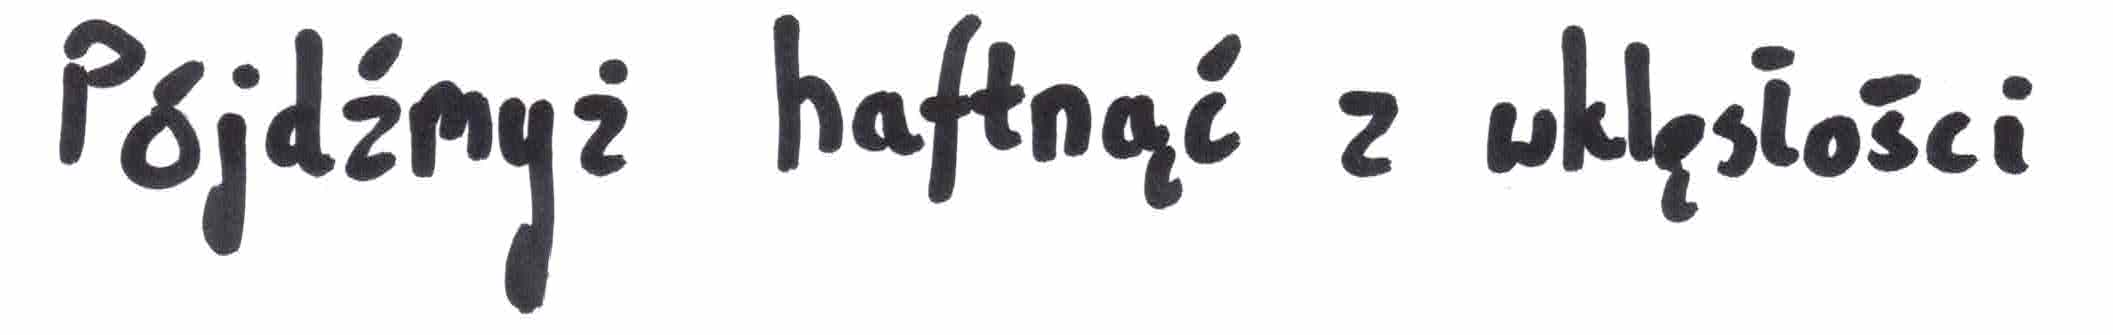 Pójdźmyż haftnąć z wklęsłości